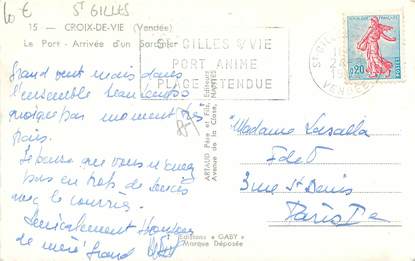 10 €
St GILLES
15 — CROIX-DE-VIE (Vendée)
Le Port - Arrivée d'un Sardinier
ST GILLES S VIE
PORT ANIMÉ
PLAGE ÉTENDUE
ST GILLES
VENDÉE
0,20
Grand vent mais dans
l'ensemble beau temps
quoique pas moment très
frais.
Je pense que vous n'avez
pas en trop de
avec le courrier.
Amicalement
de mère Grand
ARTAUD Père et Fils, Editeurs
Avenue de la Close, NANTES
Editions "GABY"
Marque Déposée
Madame Lasalla
3 rue St Denis
Paris 1er